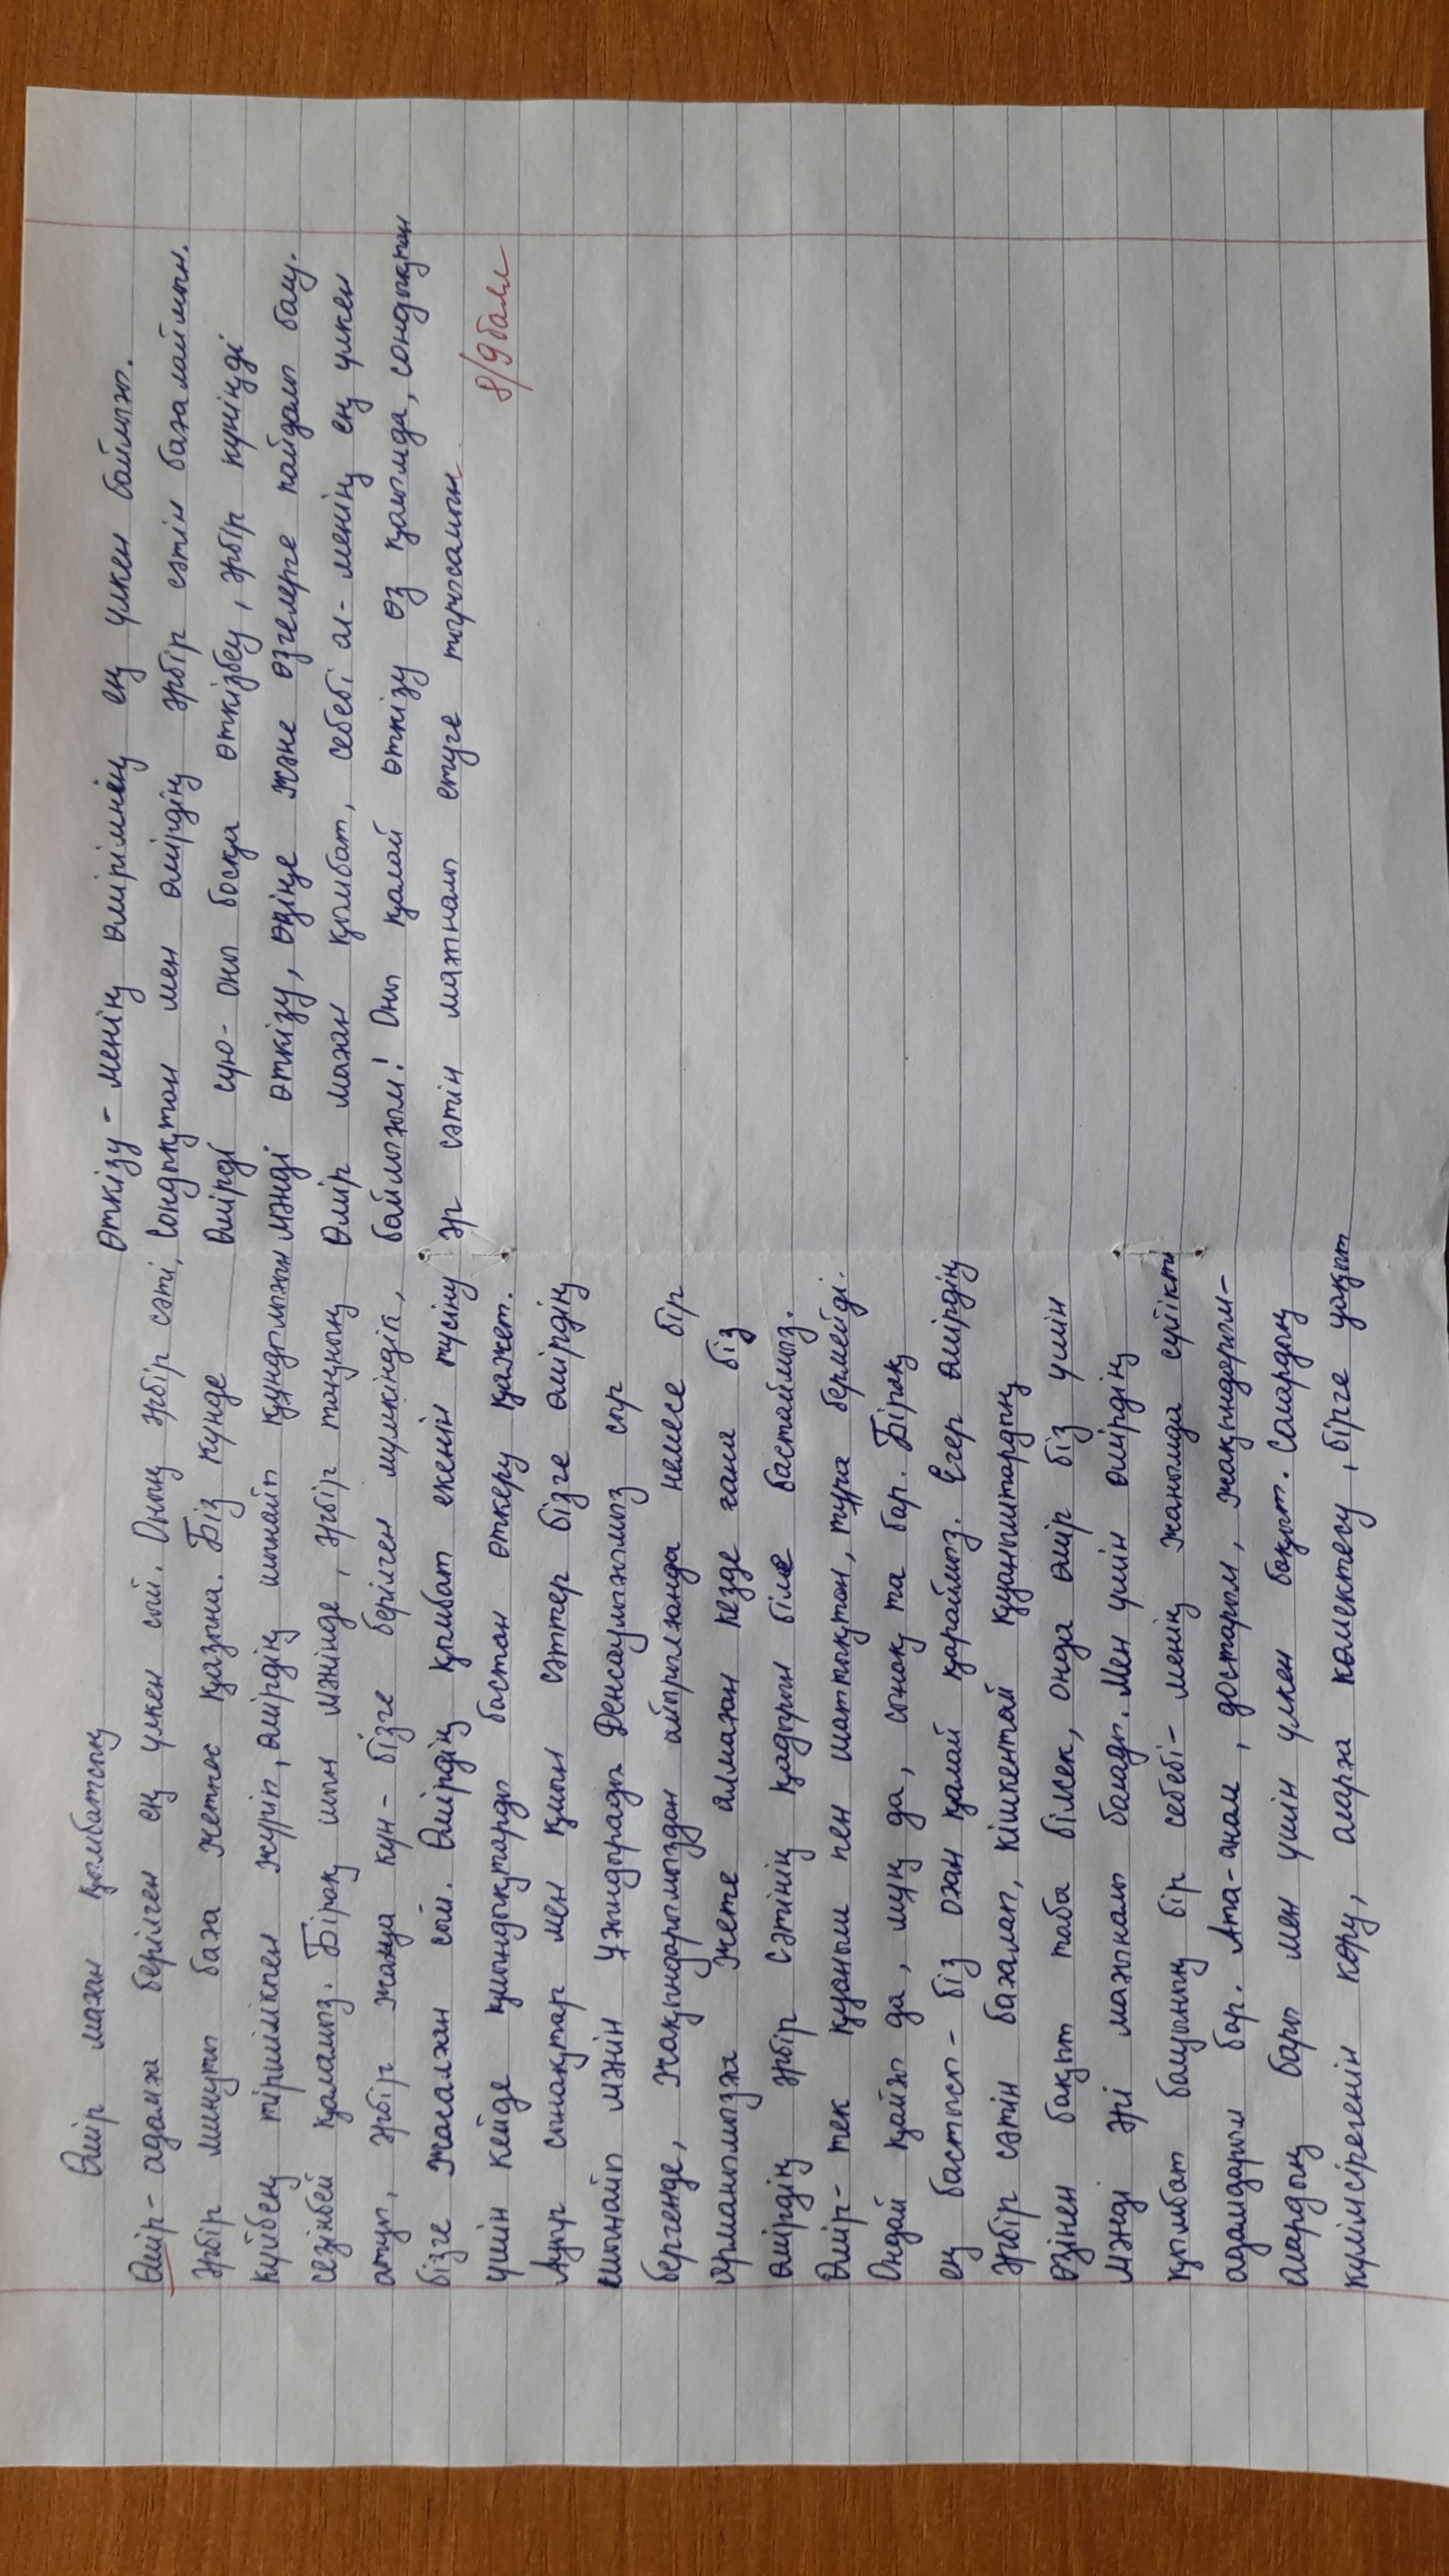 Өмір маған қымбатсың
Өмір- адамға берілген ең үлкен сый. Оның әрбір сәті,
әрбір минуты баға жетпес қазына. Біз күнде
күйбең тіршілікпен жүріп, өмірдің шынайы құндылығын
сезінбей қаламыз. Бірақ шын мәнінде, әрбір таңның
атуы, әрбір жаңа күн - бізге берілген мүмкіндік,
бізге жасалған сый. Өмірдің қымбат екенін түсіну
үшін кейде қиындықтарды бастан өткеру қажет.
Ауыр сынақтар мен қиын сәттер бізге өмірдің
шынайы мәнін ұғындырады Денсаулығымыз сыр
бергенде, жақындарымыздан айырылғанда немесе бір
арманымызға жете алмаған кезде ғана біз
өмірдің әрбір сәтінің қадірін біле бастаймыз.
Өмір- тек қуаныш пен шаттықтан, тұра бермейді.
Ондай қайғы да, мұң да, сынақ та бар. Бірақ
ең бастысы- біз оған қалай қараймыз. Егер өмірдің
әрбір сәтін бағалап, кішкентай қуаныштардың
өзінен бақыт таба білсек, онда өмір біз үшін
мәнді әрі мағыналы болады. Мен үшін өмірдің
қымбат болуының бір себебі- менің жанымда сүйікті
адамдарым бар. Ата-анам, достарым, жақындарым-
олардың бары мен үшін үлкен бақыт. Солардың
күлімсірегенін көру, оларға көмектесу, бірге уақыт
өткізу- менің өмірімнің ең үлкен байлығы.
Сондықтан мен өмірдің әрбір сәтін бағалаймын.
Өмірді сүю- оны босқа өткізбеу, әрбір күніңді
мәнді өткізу, өзіңе және өзгелерге пайдалы болу.
Өмір маған қымбат, себебі ол- менің ең үлкен
байлығым! Оны қалай өткізу өз қолымда, сондықтан
әр сәтін мағыналы етуге тырысамын
8/9балл